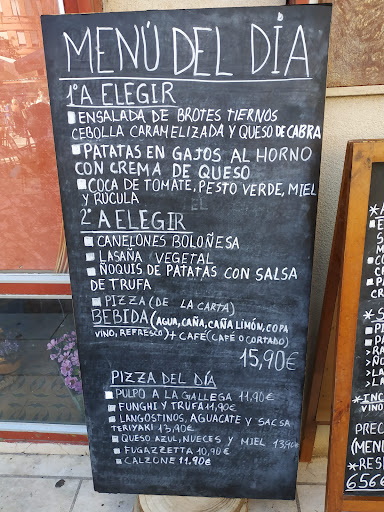 MENÚ DEL DÍA
1º A ELEGIR
ENSALADA DE BROTES TIERNOS
CEBOLLA CARAMELIZADA Y QUESO DE CABRA
PATATAS EN GAJOS AL HORNO
CON CREMA DE QUESO
COCA DE TOMATE, PESTO VERDE, MIEL
Y RÚCULA
2º A ELEGIR
CANELONES BOLOÑESA
LASAÑA VEGETAL
ÑOQUIS DE PATATAS CON SALSA
DE TRUFA
PIZZA (DE LA CARTA)
BEBIDA (AGUA, CAÑA, CAÑA LIMÓN, COPA
VINO, REFRESCO) + CAFÉ (CAFÉ O CORTADO)
15,90€
PIZZA DEL DÍA
PULPO A LA GALLEGA 11,90€
FUNGHI Y TRUFA 11,90€
LANGOSTINOS, AGUACATE Y SALSA
TERIYAKI 13,90€
QUESO AZUL, NUECES Y MIEL 13,90€
FUGAZZETTA 10,90€
CALZONE 11.90€
*INC
VINO,
PREC
(MEN
*RES
656